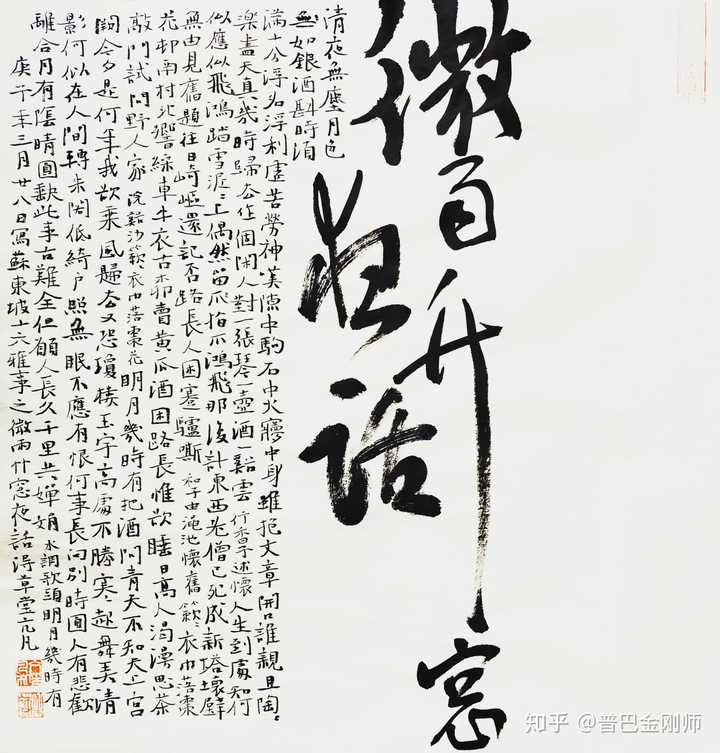 微雨竹窗
夜話
清夜無塵月色
如銀酒斟時須
滿十分浮名浮利虛苦勞神嘆隙中駒石中火夢中身雖抱文章開口誰親且陶〻
樂盡天真幾時歸去作個閑人對一張琴一壺酒一谿雲 行香子述懷 人生到處知何
似應似飛鴻踏雪泥〻上偶然留爪指爪鴻飛那復計東西老僧已死成新塔壞壁
無由見舊題往日崎嶇還記否路長人困蹇驢嘶 和子由澠池懷舊 簌〻衣巾落棗
花村南村北響繰車牛衣古柳賣黃瓜酒困路長惟欲睡日高人渴漫思茶
敲門試問野人家 浣谿沙簌〻衣巾落棗花 明月幾時有把酒問青天不知天上宮
闕今夕是何年我欲乘風歸去又恐瓊樓玉宇高處不勝寒〻起舞弄清
影何似在人間轉朱閣低綺戶照無眠不應有恨何事長向別時圓人有悲歡
離合月有陰晴圓缺此事古難全但願人長久千里共嬋娟 水調歌頭明月幾時有
庚子年三月廿八日寫蘇東坡十六雅事之微雨竹窗夜話得草堂亢凡
知乎 @普巴金刚师